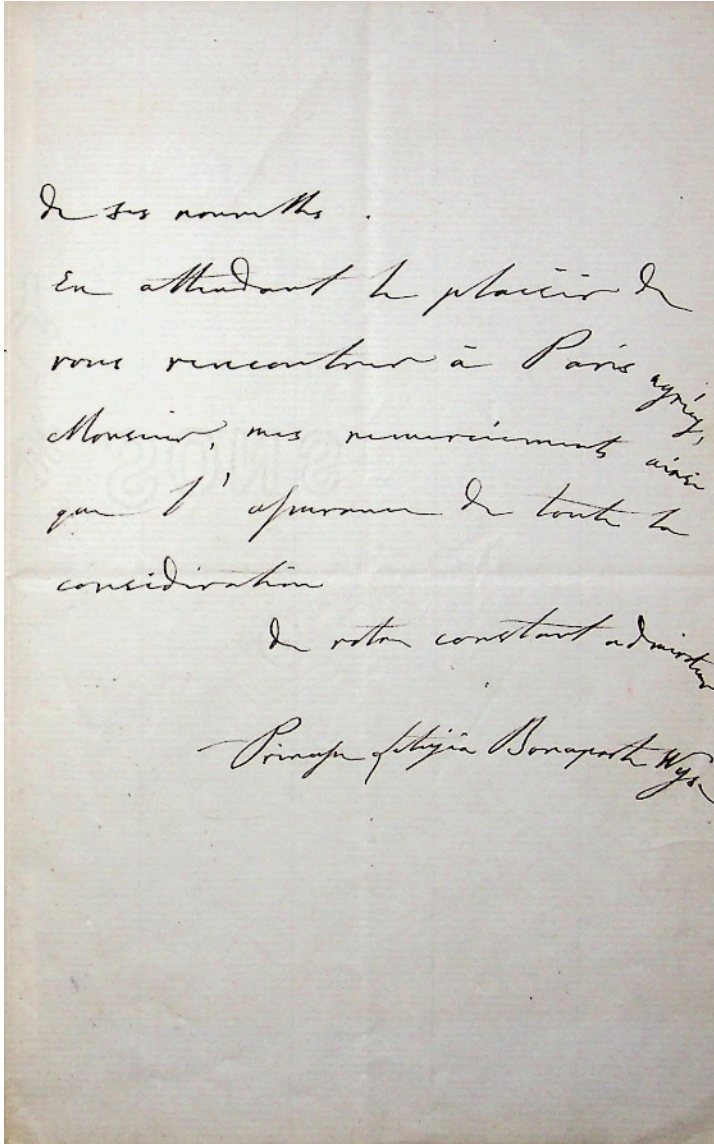 de ses nouvelles.
En attendant le plaisir de
vous rencontrer à Paris agréez,
Monsieur, mes remerciements ainsi
que l'assurance de toute la
considération
de votre constant admirateur
Princesse Letizia Bonaparte Wyse
SNOS